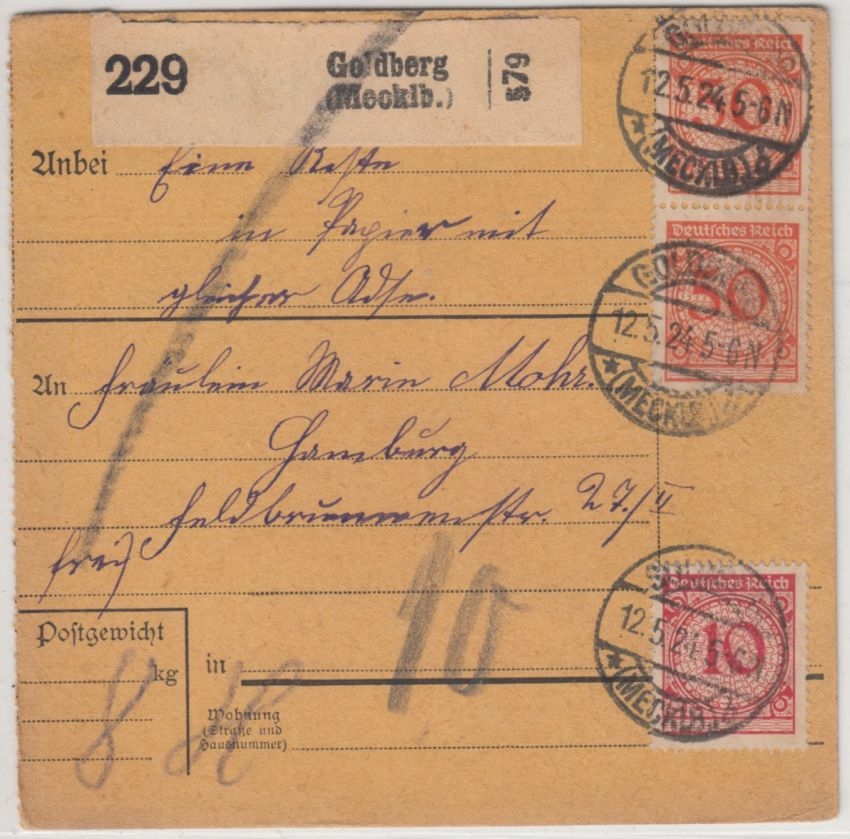 229
Goldberg
(Mecklb.)
§79
Anbei Eine Kiste
in Papier mit
gleicher Adse.
An Fräulein Marie Mohr.
Hamburg
Feldbrunnenstr. 27/II
frei
10
Postgewicht
kg
8
in
Wohnung
(Straße und
Hausnummer)
Deutsches Reich
50
12.5.24 5-6N
(MECKLB.)
Deutsches Reich
50
GOLDBERG
12.5.24 5-6N
(MECKLB.)
Deutsches Reich
10
12.5.24 5-6N
(MECKLB.)